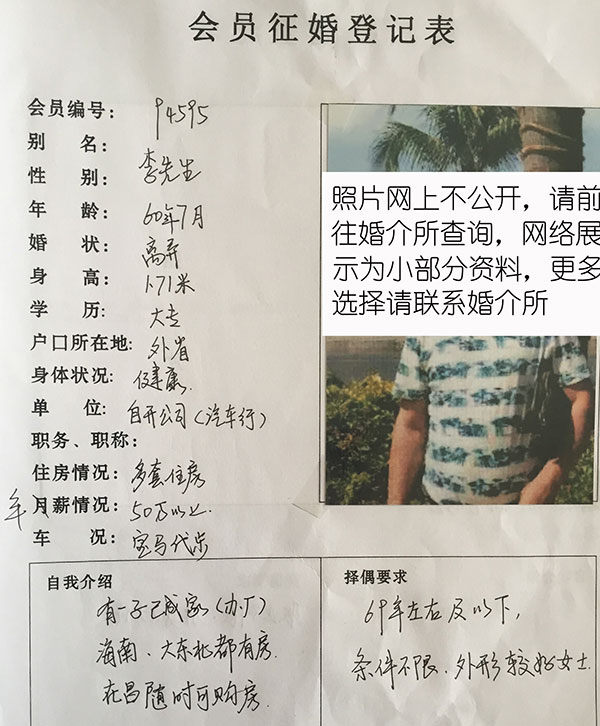 会员征婚登记表
会员编号: 94595
别 名:
性 别: 李先生
年 龄: 60年7月
婚 状: 离异
身 高: 1.71米
学 历: 大专
户口所在地: 外省
身体状况: 健康.
单 位: 自开公司(汽车行)
职务、职称:
住房情况: 多套住房
年月薪情况: 50万以上.
车 况: 宝马代步
照片网上不公开,请前
往婚介所查询,网络展
示为小部分资料,更多
选择请联系婚介所
自我介绍
有一子已成家(办厂)
海南、大东北都有房.
在昌随时可购房.
择偶要求
69年左右及以下,
条件不限.外形较好女士.